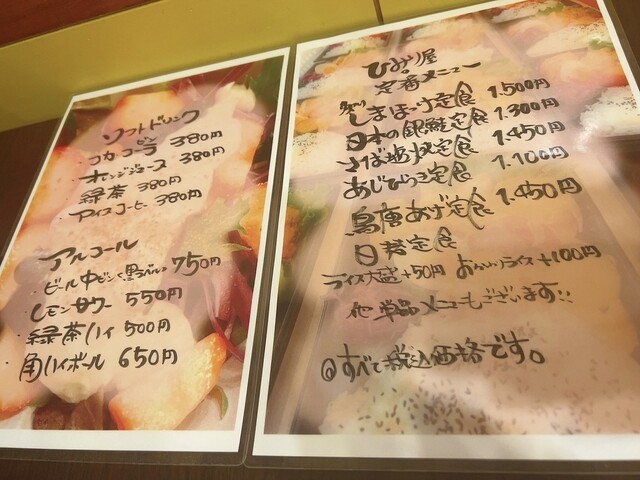 ソフトドリンク
・コカ・コーラ ビン 380円
・オレンジジュース 380円
・緑茶 380円
・アイスコーヒー 380円
アルコール
・ビール中ビン(黒ラベル) 750円
・レモンサワー 550円
・緑茶ハイ 500円
・角ハイボール 650円
ひかり屋
定番メニュー
しまほっけ定食 1.500円
日本の銀鮭定食 1.300円
さば塩焼定食 1.450円
あじひらき定食 1.100円
鳥唐あげ定食 1.450円
日替定食
ライス大盛+50円 おかわりライス+100円
他単品メニューもございます!!
◎すべて税込価格です。